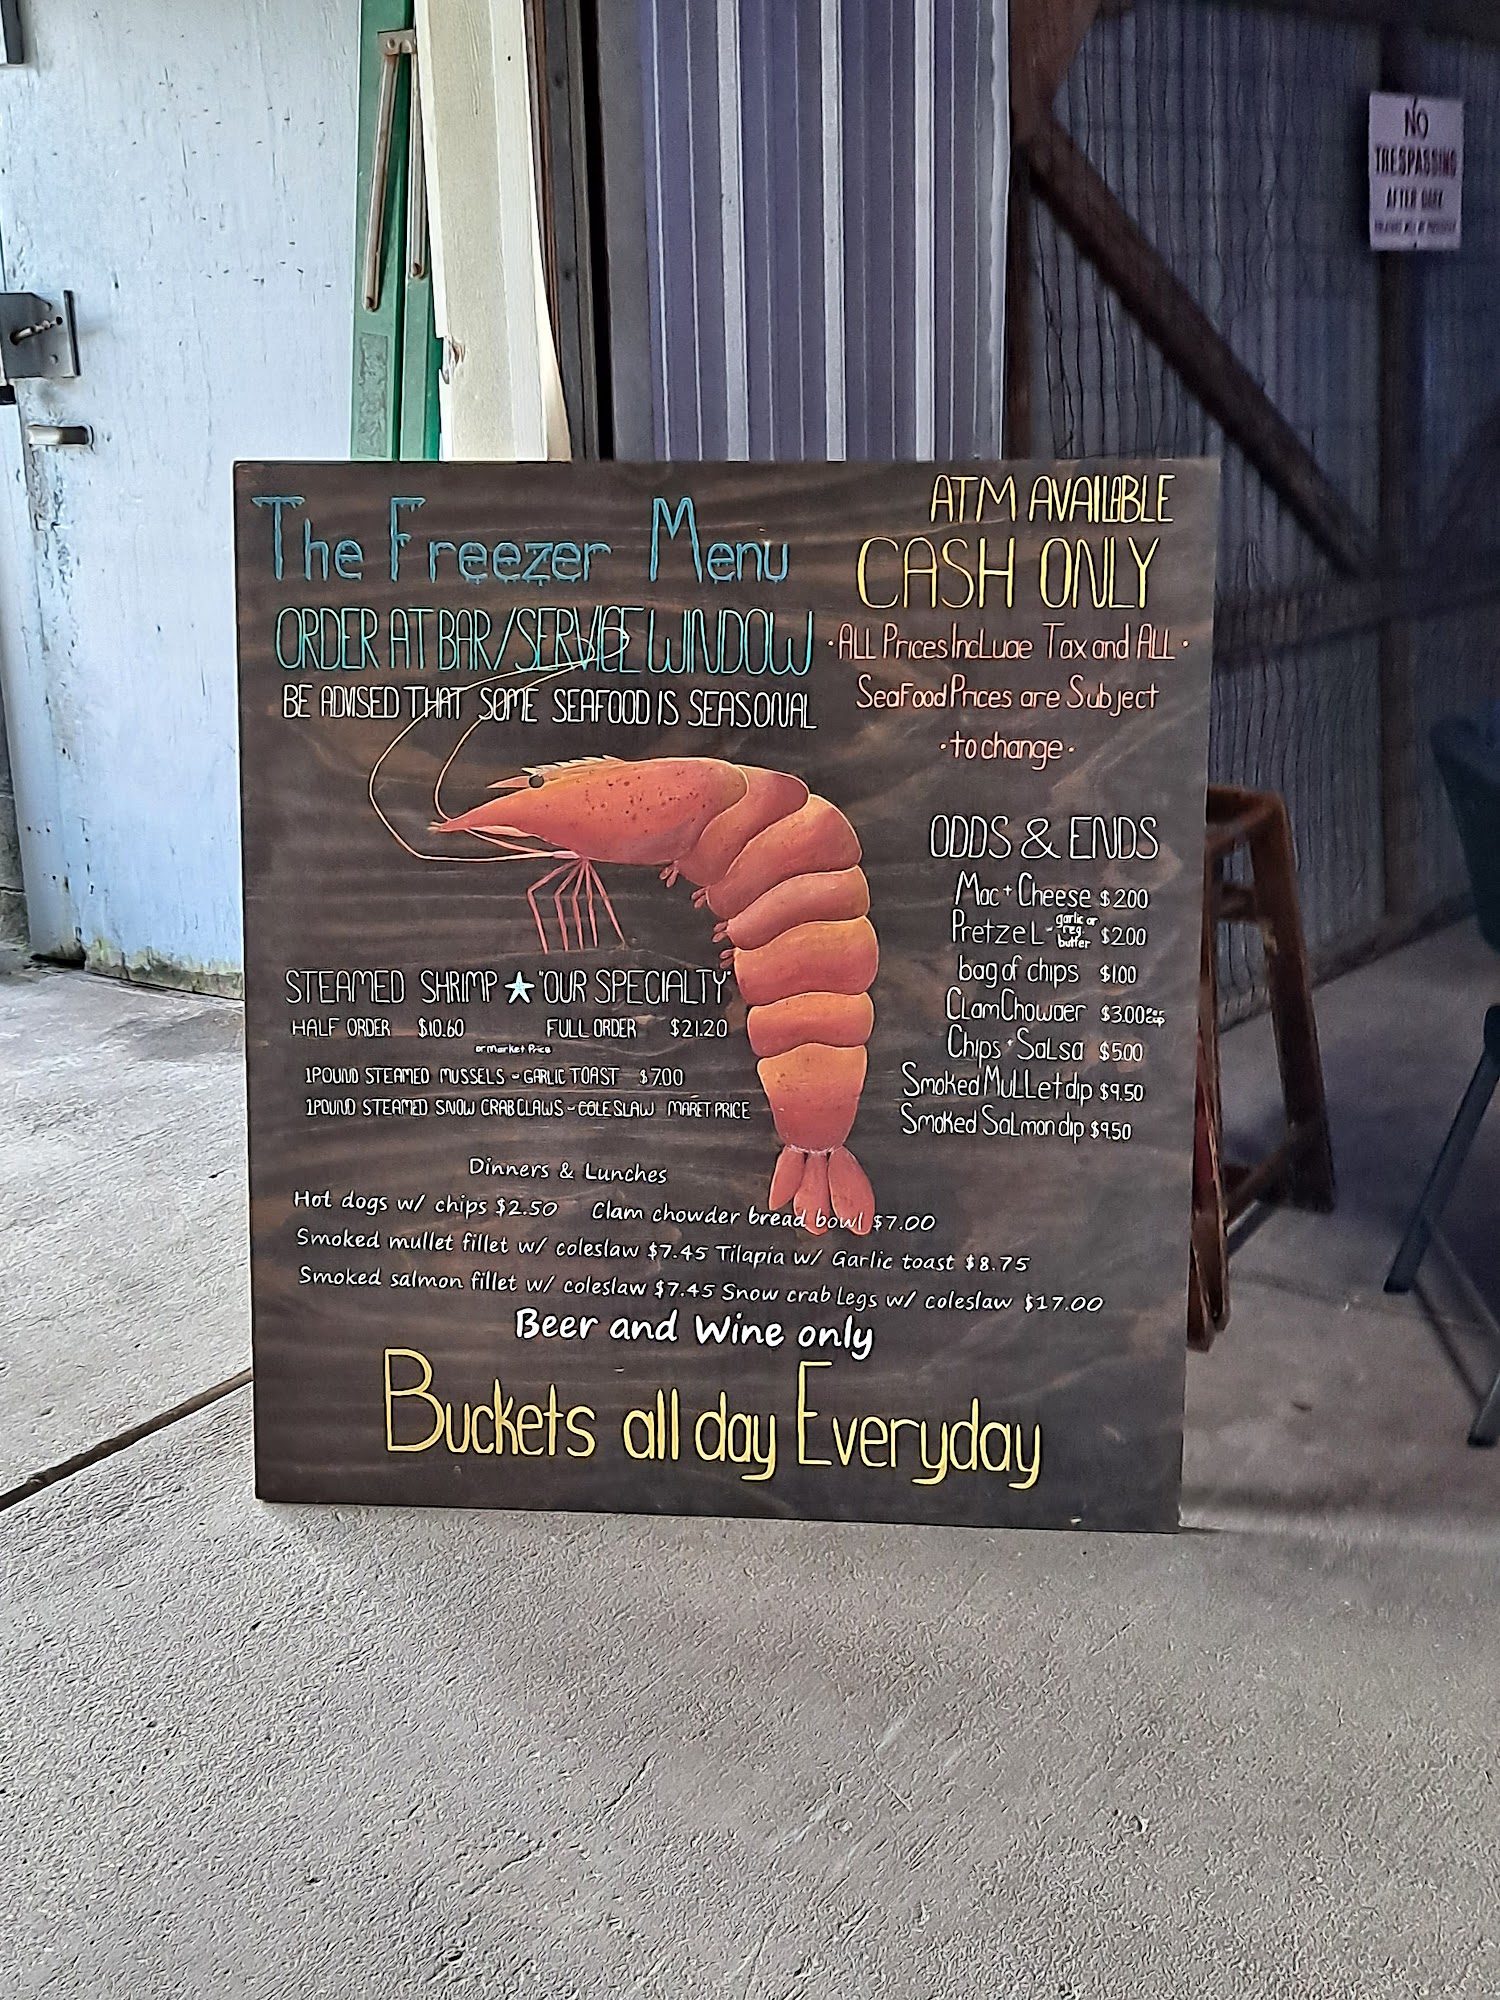 NO
TRESPASSING
AFTER DARK
The Freezer Menu
ORDER AT BAR/SERVICE WINDOW
BE ADVISED THAT SOME SEAFOOD IS SEASONAL
ATM AVAILABLE
CASH ONLY
·ALL Prices Include Tax and ALL·
SeaFood Prices are Subject
·to change·
ODDS & ENDS
Mac + Cheese $2.00
Pretzel - garlic or reg. butter $2.00
bag of chips $1.00
Clam Chowder $3.00 Per cup
Chips + Salsa $5.00
Smoked Mullet dip $9.50
Smoked Salmon dip $9.50
STEAMED SHRIMP ★ "OUR SPECIALTY"
HALF ORDER $10.60 FULL ORDER $21.20
or Market Price
1 POUND STEAMED MUSSELS - GARLIC TOAST $7.00
1 POUND STEAMED SNOW CRAB CLAWS - COLESLAW MARET PRICE
Dinners & Lunches
Hot dogs w/ chips $2.50 Clam chowder bread bowl $7.00
Smoked mullet fillet w/ coleslaw $7.45 Tilapia w/ Garlic toast $8.75
Smoked salmon fillet w/ coleslaw $7.45 Snow crab Legs w/ coleslaw $17.00
Beer and Wine only
Buckets all day Everyday